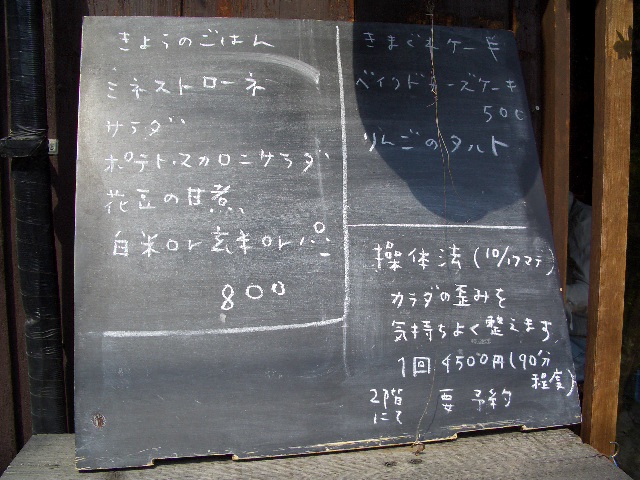 きょうのごはん
ミネストローネ
サラダ
ポテト・マカロニサラダ
花豆の甘煮
白米or玄米orパン
800
きまぐれケーキ
ベイクドチーズケーキ
500
りんごのタルト
操体法(10/17マデ)
カラダの歪みを
気持ちよく整えます
1回4500円(90分
程度)
2階
にて
要予約